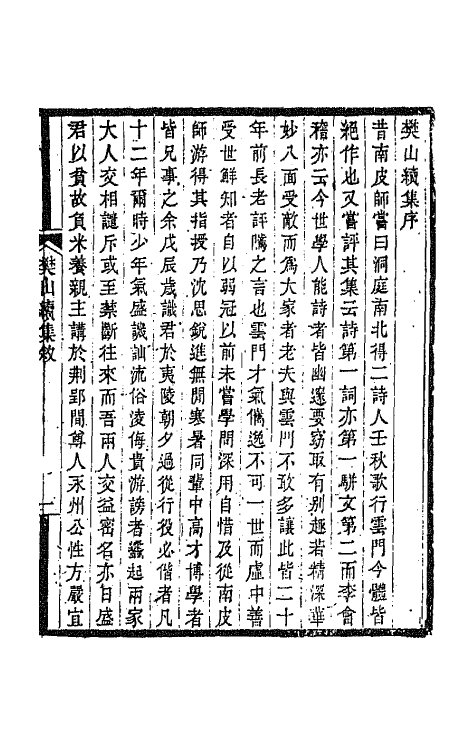 樊山續集序
昔南皮師嘗曰洞庭南北得二詩人壬秋歌行雲門今體皆
絕作也又嘗評其集云詩第一詞亦第一駢文第二而李會
稽亦云今世學人能詩者皆幽邃要窈取有别趣若精深華
妙八面受敵而爲大家者老夫與雲門不敢多讓此皆二十
年前長老評隲之言也雲門才氣儁逸不可一世而虛中善
受世鮮知者自以弱冠以前未嘗學問深用自惜及從南皮
師游得其指授乃沈思銳進無閒寒暑同輩中高才博學者
皆兄事之余戊辰歳識君於夷陵朝夕過從行役必偕者凡
十二年爾時少年氣盛譏訕流俗凌侮貴游謗者蠭起兩家
大人交相譴斥或至禁斷往來而吾兩人交益密名亦日盛
君以貧故負米養親主講於荆郢間尊人永州公性方嚴宜
樊山續集敘
一